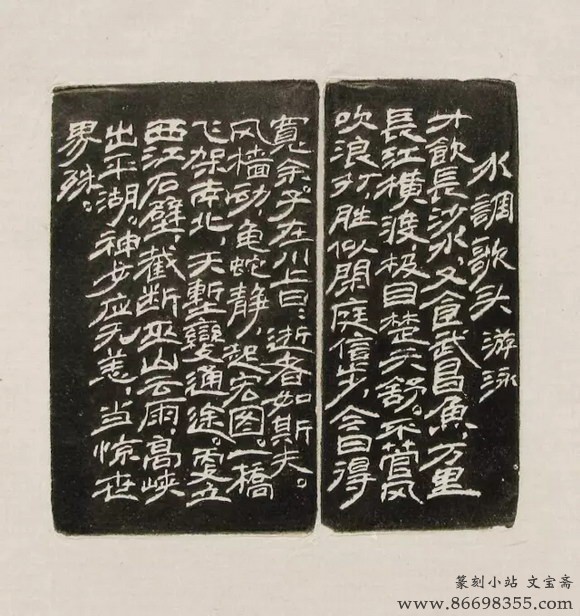 水調歌头 游泳
才飲長沙水,又食武昌魚,万里
長江橫渡,极目楚天舒。不菅风
吹浪打,胜似閑庭信步,今日得
寬余。子在川上曰:逝者如斯夫。
风檣动,龟蛇静,起宏图。一橋
飞架南北,天塹變通途。更立
西江石壁,截断巫山云雨,高峡
出平湖。神女应无恙,当惊世
界殊。
篆刻小站 文宝斋
www.86698355.com